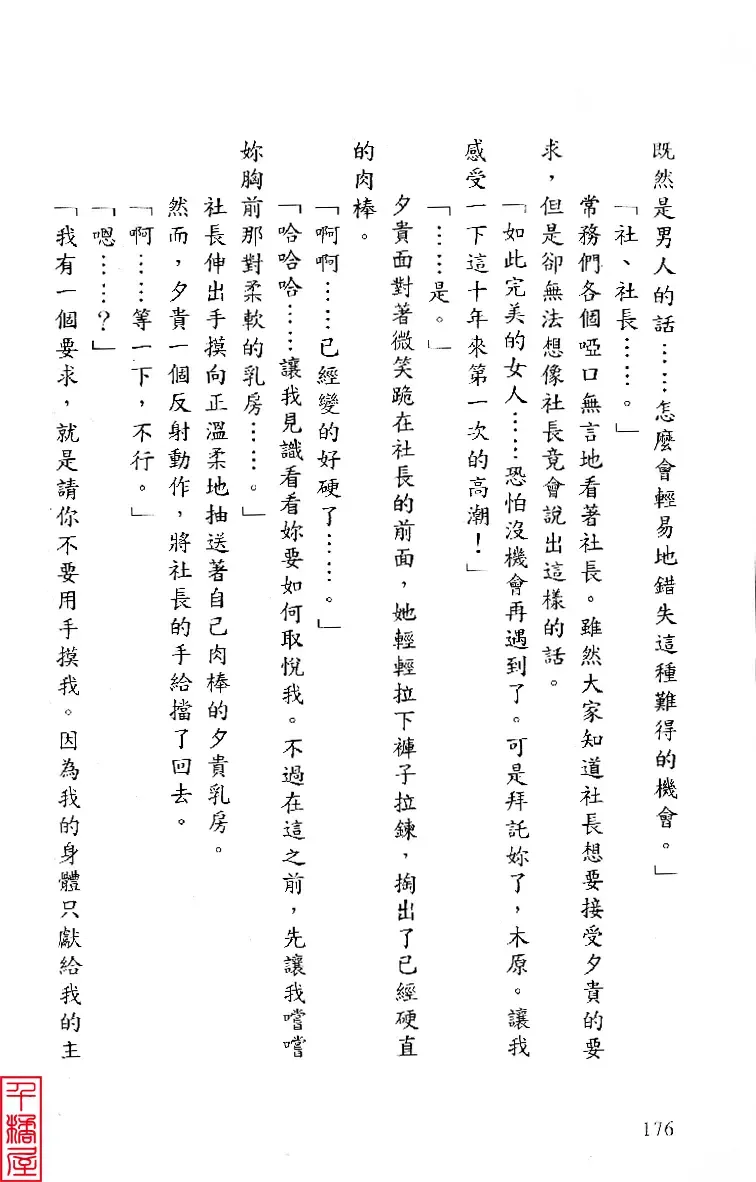 既然是男人的話……怎麼會輕易地錯失這種難得的機會。」
「社、社長……。」
常務們各個啞口無言地看著社長。雖然大家知道社長想要接受夕貴的要
求，但是卻無法想像社長竟會說出這樣的話。
「如此完美的女人……恐怕沒機會再遇到了。可是拜託妳了，木原。讓我
感受一下這十年來第一次的高潮！」
「……是。」
夕貴面對著微笑跪在社長的前面，她輕輕拉下褲子拉鍊，掏出了已經硬直
的肉棒。
「啊啊……已經變的好硬了……。」
「哈哈哈……讓我見識看看妳要如何取悅我。不過在這之前，先讓我嚐嚐
妳胸前那對柔軟的乳房……。」
社長伸出手摸向正溫柔地抽送著自己肉棒的夕貴乳房。
然而，夕貴一個反射動作，將社長的手給擋了回去。
「啊……等一下，不行。」
「嗯……？」
「我有一個要求，就是請你不要用手摸我。因為我的身體只獻給我的主
176